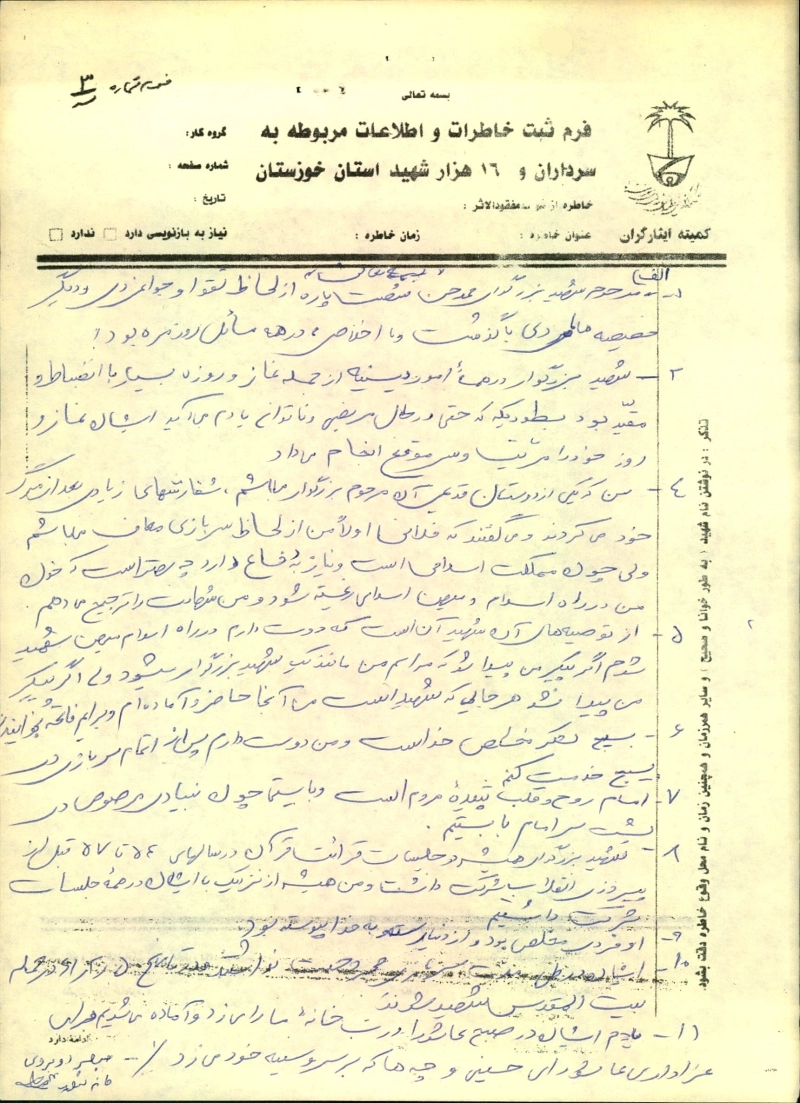 بسمه تعالی
فرم شماره ۳
فرم ثبت خاطرات و اطلاعات مربوطه به
گروه کار:
سرداران و ۱۶ هزار شهید استان خوزستان
شماره صفحه :
خاطره از مفقودالاثر :
تاریخ :
کمیته ایثارگران
عنوان خاطره :
زمان خاطره :
نیاز به بازنویسی دارد ندارد
الف)
بسمه تعالی
۱- مرحوم شهید بزرگوار محمد حسن پاره از لحاظ تقوا و جوانمردی و دیگر
خصیصه مردی با گذشت و با اخلاص در همه مسائل روزمره بود
۲- شهید بزرگوار در همهٔ امور دینیه از جمله نماز و روزه بسیار با انضباط و
مقیّد بود بطوریکه که حتی در حال مریضی و ناتوانی یادم می‌آید ایشان نماز و
روزه خود را مرتب و سر موقع انجام می‌داد
۴- من که یکی از دوستان قدیمی آن مرحوم بزرگوار میباشم ، سفارشهای زیادی بعد از مرگ
خود می‌کردند و می‌گفتند که فلانی اولاً من از لحاظ سربازی معاف میباشم
ولی چون مملکت اسلامی است و نیاز به دفاع دارد چه بهتر است که خون
من در راه اسلام و میهن اسلامی ریخته شود و من شهادت را ترجیح می‌دهم .
۵- از توصیه‌های آن شهید آن است که دوست دارم در راه اسلام میهن شهید
شوم اگر پیکر من پیدا شد که مراسم من مانند یک شهید بزرگوار میشود ولی اگر پیکر
من پیدا نشد هر جایی که شهید است من آنجا حاضر و آماده‌ام و برایم فاتحه بخوانید
۶- بسیج لشکر مخلص خداست و من دوست دارم پس از اتمام سربازی در
بسیج خدمت کنم
۷- امام روح و قلب تپندهٔ مردم است و بایستی چون بنیادی مرصوص در
پشت سر امام بایستیم .
۸- شهید بزرگوار همیشه در جلسات قرائت قرآن در سالهای ۵۴ تا ۵۷ قبل از
پیروزی انقلاب شرکت داشت و من همیشه از نزدیک با ایشان در همهٔ جلسات
شرکت داشتیم
۹- او فردی مخلص بود و از دنیا رسته و به خدا پیوسته بود
۱۰- ایشان در حمله
بیت المقدس شهید شدند
۱۱- یادم ایشان در صبح عاشورا درب خانهٔ ما را می‌زد و آماده می‌شدیم برای
عزاداری عاشورای حسینی و چه‌ها که بر سر و سینه خود می‌زد
ادامه دارد
تذکر : در نوشتن نام شهید ( به طور خوانا و صحیح ) و سایر همرزمان و همچنین زمان و نام محل وقوع خاطره دقت بشود.